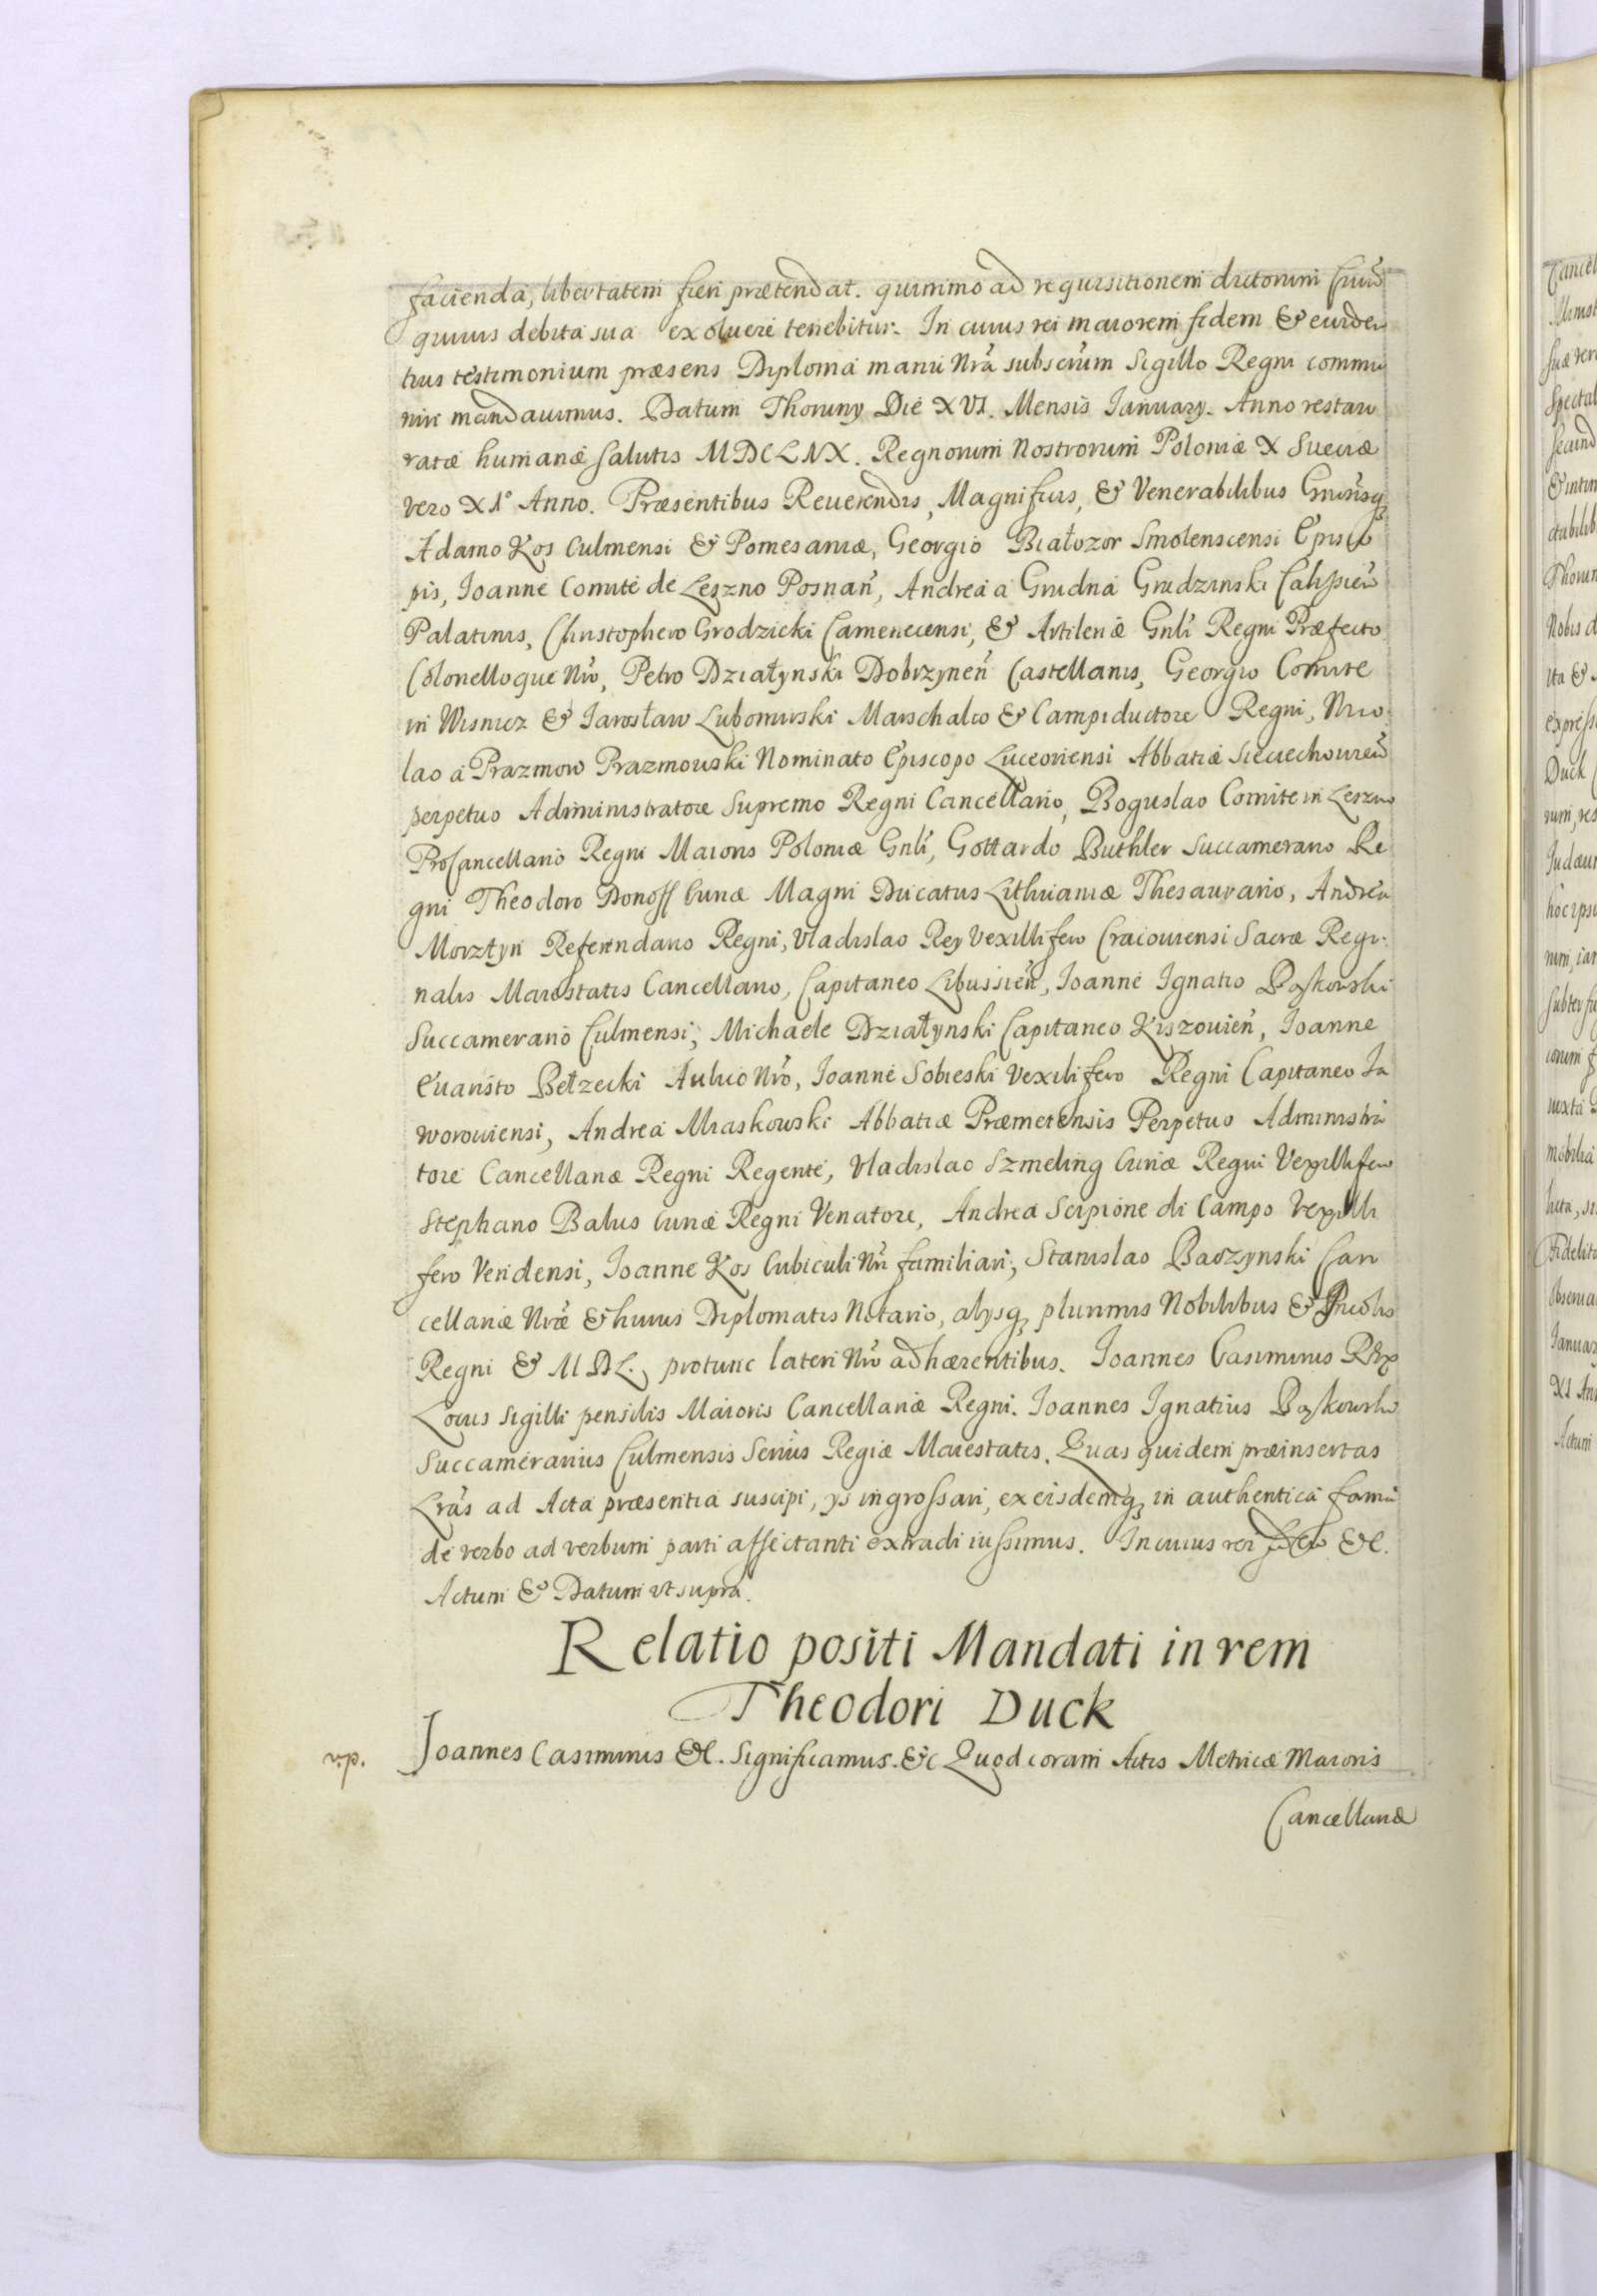 facienda, libertatem fieri prætendat. quinimo ad requisitionem dictorum Civiũ
quivis debita sua exoluere tenebitur. In cuius rei maiorem fidem & euiden
tius testimonium præsens Diploma manu Nrã subscrũm Sigillo Regni commu
nire mandauimus. Datum Thoruny Die XVI. Mensis Ianuary. Anno restau
ratæ humanæ salutis MDCLIX. Regnorum Nostrorum Poloniæ X Sueciæ
vero X1° Anno. Præsentibus Reuerendis, Magnificis, & Venerabilibus Gnrãsq
Adamo Kos Culmensi & Pomesaniæ, Georgio Białozor Smolenscensi Episco
pis, Ioanne Comite de Leszno Posnañ, Andrea a Grudna Grudzinski Calissieñ
Palatinis, Christophero Grodzicki Camenecensi, & Artileriæ Gnli Regni Præfecto
Colonelloque Nrõ, Petro Działynski Dobrzyneñ Castellanis, Georgio Comite
in Wisnicz & Iarosław Lubomirski Marschalco & Campiductore Regni, Nico
lao a Prazmow Prazmowski Nominato Episcopo Luceoriensi Abbatiæ Sieciechouieñ
perpetuo Administratore Supremo Regni Cancellario, Boguslao Comite in Leszno
ProCancellario Regni Maioris Poloniæ Gnli, Gottardo Buthler Succamerario Re
gni Theodoro Donoff Curiæ Magni Ducatus Lithuaniæ Thesaurario, Andrea
Morztyn Referendario Regni, Vladislao Rey Vexillifero Cracouiensi Sacræ Regi
nalis Maiestatis Cancellario, Capitaneo Libussieñ, Ioanne Ignatio Bąkowski
Succamerario Culmensi, Michaele Działynski Capitaneo Kiszouieñ, Ioanne
Euaristo Bełzecki Aulico Nrõ, Ioanne Sobieski Vexilifero Regni Capitaneo Ia
woroviensi, Andrea Miaskowski Abbatiæ Præmetensis Perpetuo Administra
tore Cancellariæ Regni Regente, Vladislao Szmeling Curiæ Regni Vexillifero
Stephano Balus Curiæ Regni Venatore, Andrea Scipione di Campo Vexilli
fero Vendensi, Ioanne Kos Cubiculi Nri familiari, Stanislao Baszynski Can
cellariæ Nræ & huius Diplomatis Notario, alysq plurimis Nobilibus & Incolis
Regni & M D L. protunc lateri Nrõ adhærentibus. Ioannes Casimirus Rex
Locus sigilli pensilis Maioris Cancellariæ Regni. Ioannes Ignatius Bąkowski
Succamerarius Culmensis Serius Regiæ Maiestatis. Quas quidem præinsertas
Lrãs ad Acta præsentia suscipi, ys ingrossari, ex eisdemq in authentica forma
de verbo ad verbum parti affectanti extradi iussimus. In cuius rei fidem &c.
Actum & Datum ut supra.
Relatio positi Mandati in rem
Theodori Duck
v.p. Ioannes Casimirus &c. Significamus. &c Quod coram Actis Metricæ Maioris
Cancellariæ